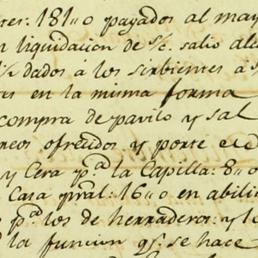 res: 181" 0 payados al may
n liquidacion de S/c. salio al
dados á los sirbientes á s
es en la misma forma
compra de pavilo y sal
reos ofrecidos y porte el
y Cera pª la Capilla: 8" 0
Casa pral: 16" 0 en abili
pª los de herraderos y l
la funcion qe. se hace